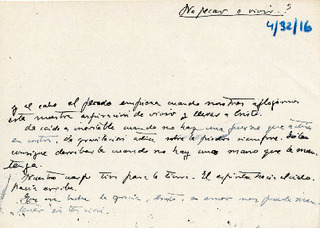 No pecar o vivir..?
4/32/16
y al cabo el pecado empieza cuando nosotros aflojamos
esta nuestra aspiración de vivir y llevar a Cristo.
La caída es inevitable cuando no hay una fuerza que actúe
en contra; la gravitación actúa sobre la piedra siempre
consigue derribarla cuando no hay una mano que la man-
tenga.
Nuestro cuerpo tira para la tierra. El espíritu hacia el cielo.
hacia arriba.
la gracia, amor nos puede man-